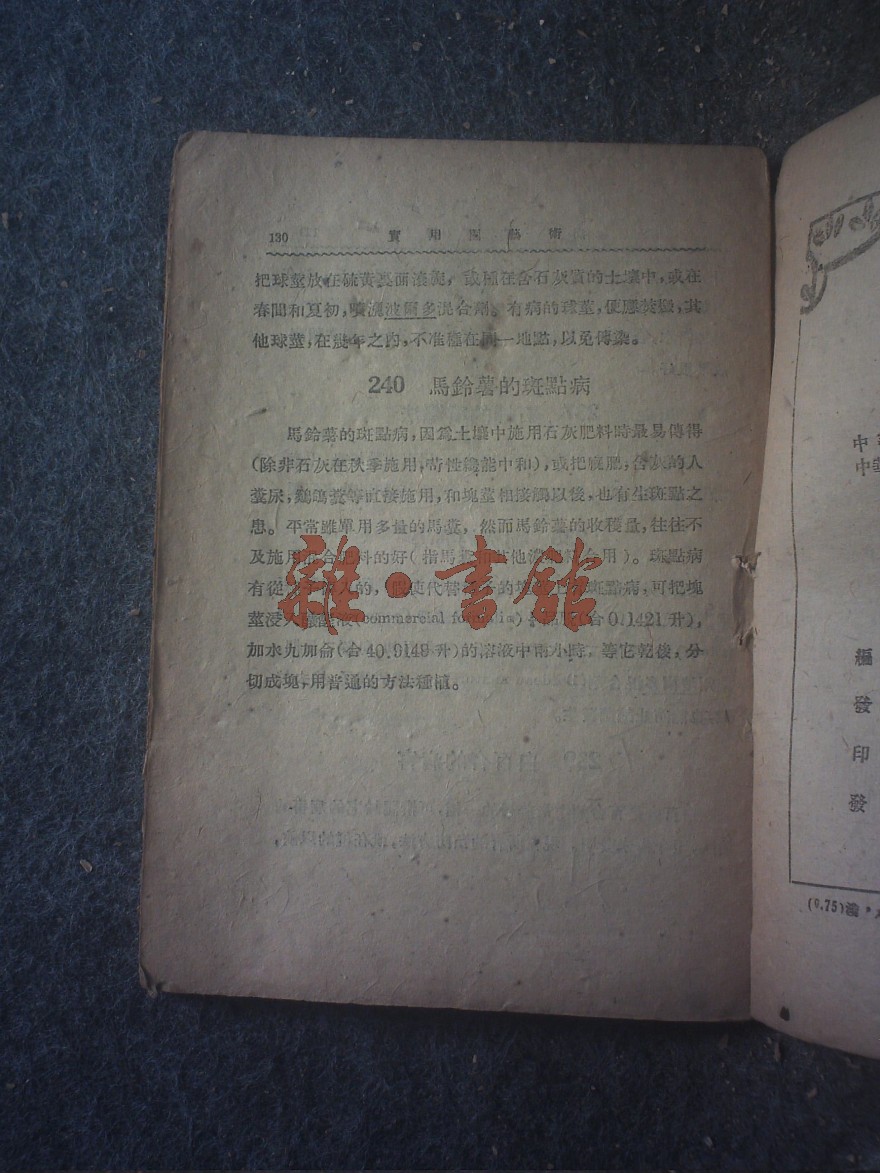 130 實用園藝術
把球莖放在硫黃裏面滾旋，或種在含石灰質的土壤中，或在
春間和夏初，噴洒波爾多混合劑。有病的球莖，便應焚燬，其
他球莖，在幾年之內，不准種在同一地點，以免傳染。
240 馬鈴薯的斑點病
馬鈴薯的斑點病，因爲土壤中施用石灰肥料時最易傳得
(除非石灰在秋季施用，苛性纔能中和)，或把廐肥，含灰的人
糞尿，鷄鴿糞等直接施用，和塊莖相接觸以後，也有生斑點之
患。平常雖單用多量的馬糞，然而馬鈴薯的收穫量，往往不
及施用混合肥料的好(指馬糞和其他 合用)。斑點病
有從 的，假使代替 的塊莖上有斑點病，可把塊
莖浸入 液(commercial formalin) (合0.1421升)，
加水九加侖(合40.9148升)的溶液中兩小時，等它乾後，分
切成塊，用普通的方法種植。
雜·書館
中
中華
編
發
印
發
(0.75)